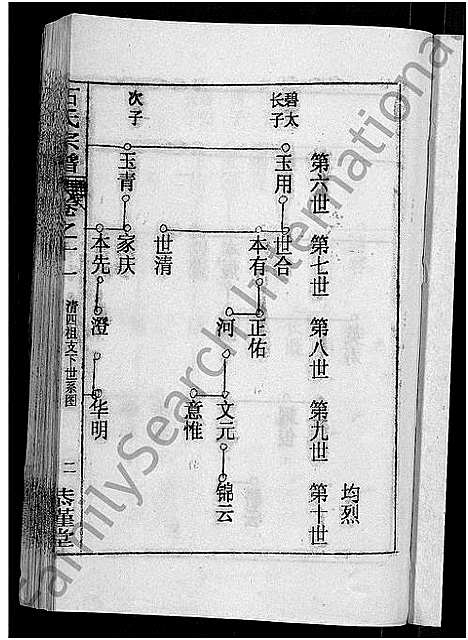 均烈
第六世
第七世
第八世
第九世
第十世
碧太
长子
玉用
世合
本有
正佑
河
文元
意惟
锦云
世清
次子
玉青
家庆
本先
澄
华明
石氏宗谱
卷之二
清四祖支下世系图
二
恭谨堂
FamilySearch International